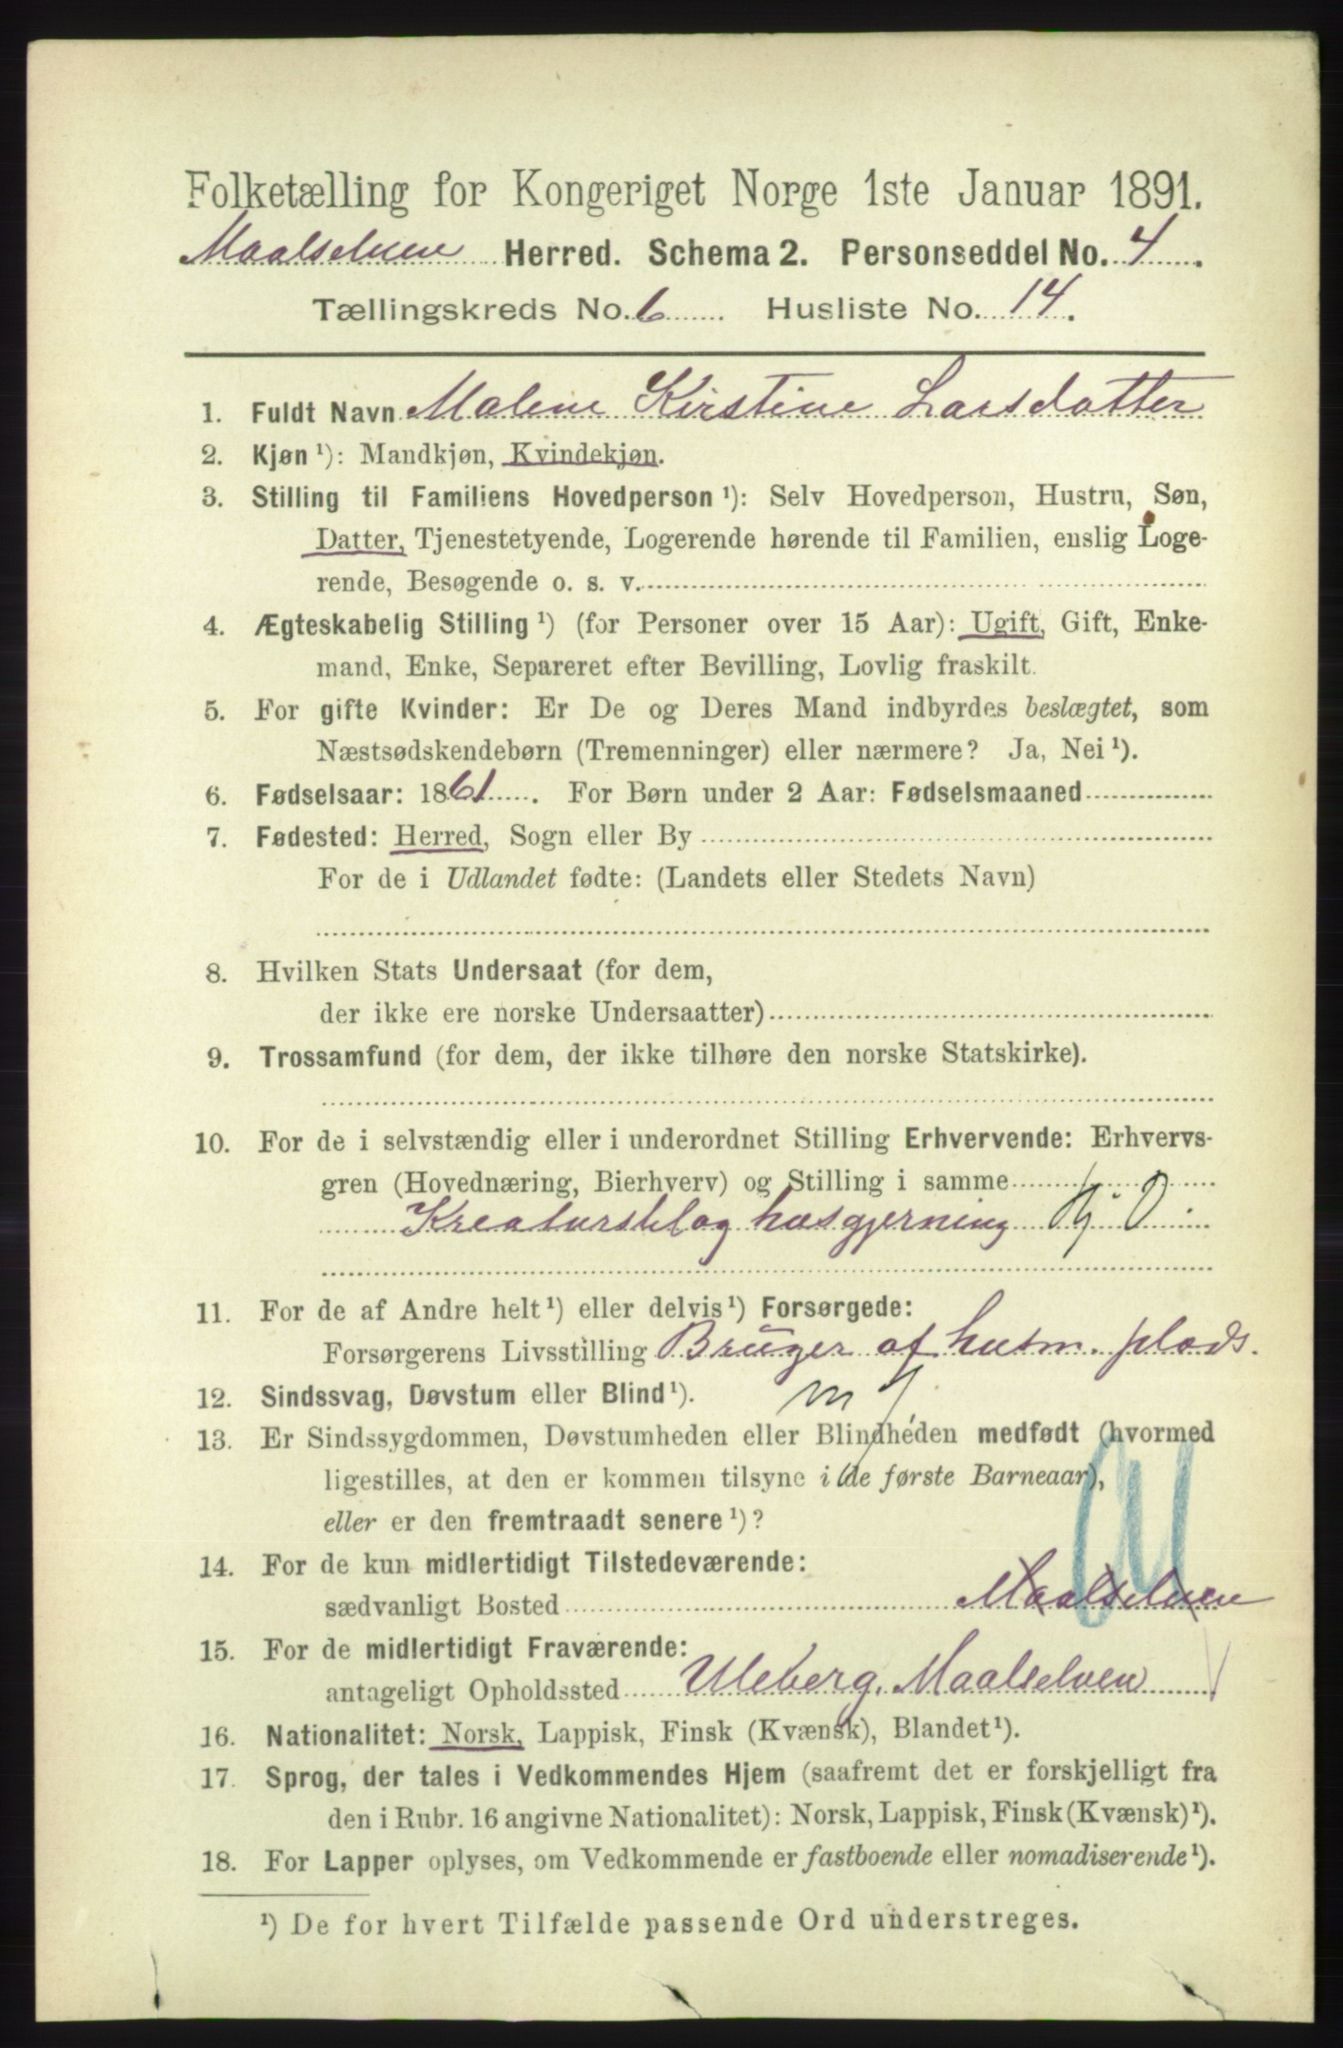 Folketælling for Kongeriget Norge 1ste Januar 1891.
Maalselven Herred. Schema 2. Personseddel No. 4.
Tællingskreds No. 6 Husliste No. 14.
1. Fuldt Navn Malene Kirstine Larsdatter
2. Kjøn ¹): Mandkjøn, Kvindekjøn.
3. Stilling til Familiens Hovedperson ¹): Selv Hovedperson, Hustru, Søn,
Datter, Tjenestetyende, Logerende hørende til Familien, enslig Loge-
rende, Besøgende o. s. v.
4. Ægteskabelig Stilling ¹) (for Personer over 15 Aar): Ugift, Gift, Enke-
mand, Enke, Separeret efter Bevilling, Lovlig fraskilt.
5. For gifte Kvinder: Er De og Deres Mand indbyrdes beslægtet, som
Næstsødskendebørn (Tremenninger) eller nærmere? Ja, Nei ¹).
6. Fødselsaar: 1861. For Børn under 2 Aar: Fødselsmaaned
7. Fødested: Herred, Sogn eller By
For de i Udlandet fødte: (Landets eller Stedets Navn)
8. Hvilken Stats Undersaat (for dem,
der ikke ere norske Undersaatter)
9. Trossamfund (for dem, der ikke tilhøre den norske Statskirke).
10. For de i selvstændig eller i underordnet Stilling Erhvervende: Erhvervs-
gren (Hovednæring, Bierhverv) og Stilling i samme
Kreaturstel og husgjerning
11. For de af Andre helt ¹) eller delvis ¹) Forsørgede:
Forsørgerens Livsstilling Bruger af husm. plads.
12. Sindssvag, Døvstum eller Blind ¹).
13. Er Sindssygdommen, Døvstumheden eller Blindheden medfødt (hvormed
ligestilles, at den er kommen tilsyne i de første Barneaar),
eller er den fremtraadt senere ¹)?
14. For de kun midlertidigt Tilstedeværende:
sædvanligt Bosted Maalselven
15. For de midlertidigt Fraværende:
antageligt Opholdssted Uleberg, Maalselven
16. Nationalitet: Norsk, Lappisk, Finsk (Kvænsk), Blandet ¹).
17. Sprog, der tales i Vedkommendes Hjem (saafremt det er forskjelligt fra
den i Rubr. 16 angivne Nationalitet): Norsk, Lappisk, Finsk (Kvænsk) ¹).
18. For Lapper oplyses, om Vedkommende er fastboende eller nomadiserende ¹).
¹) De for hvert Tilfælde passende Ord understreges.